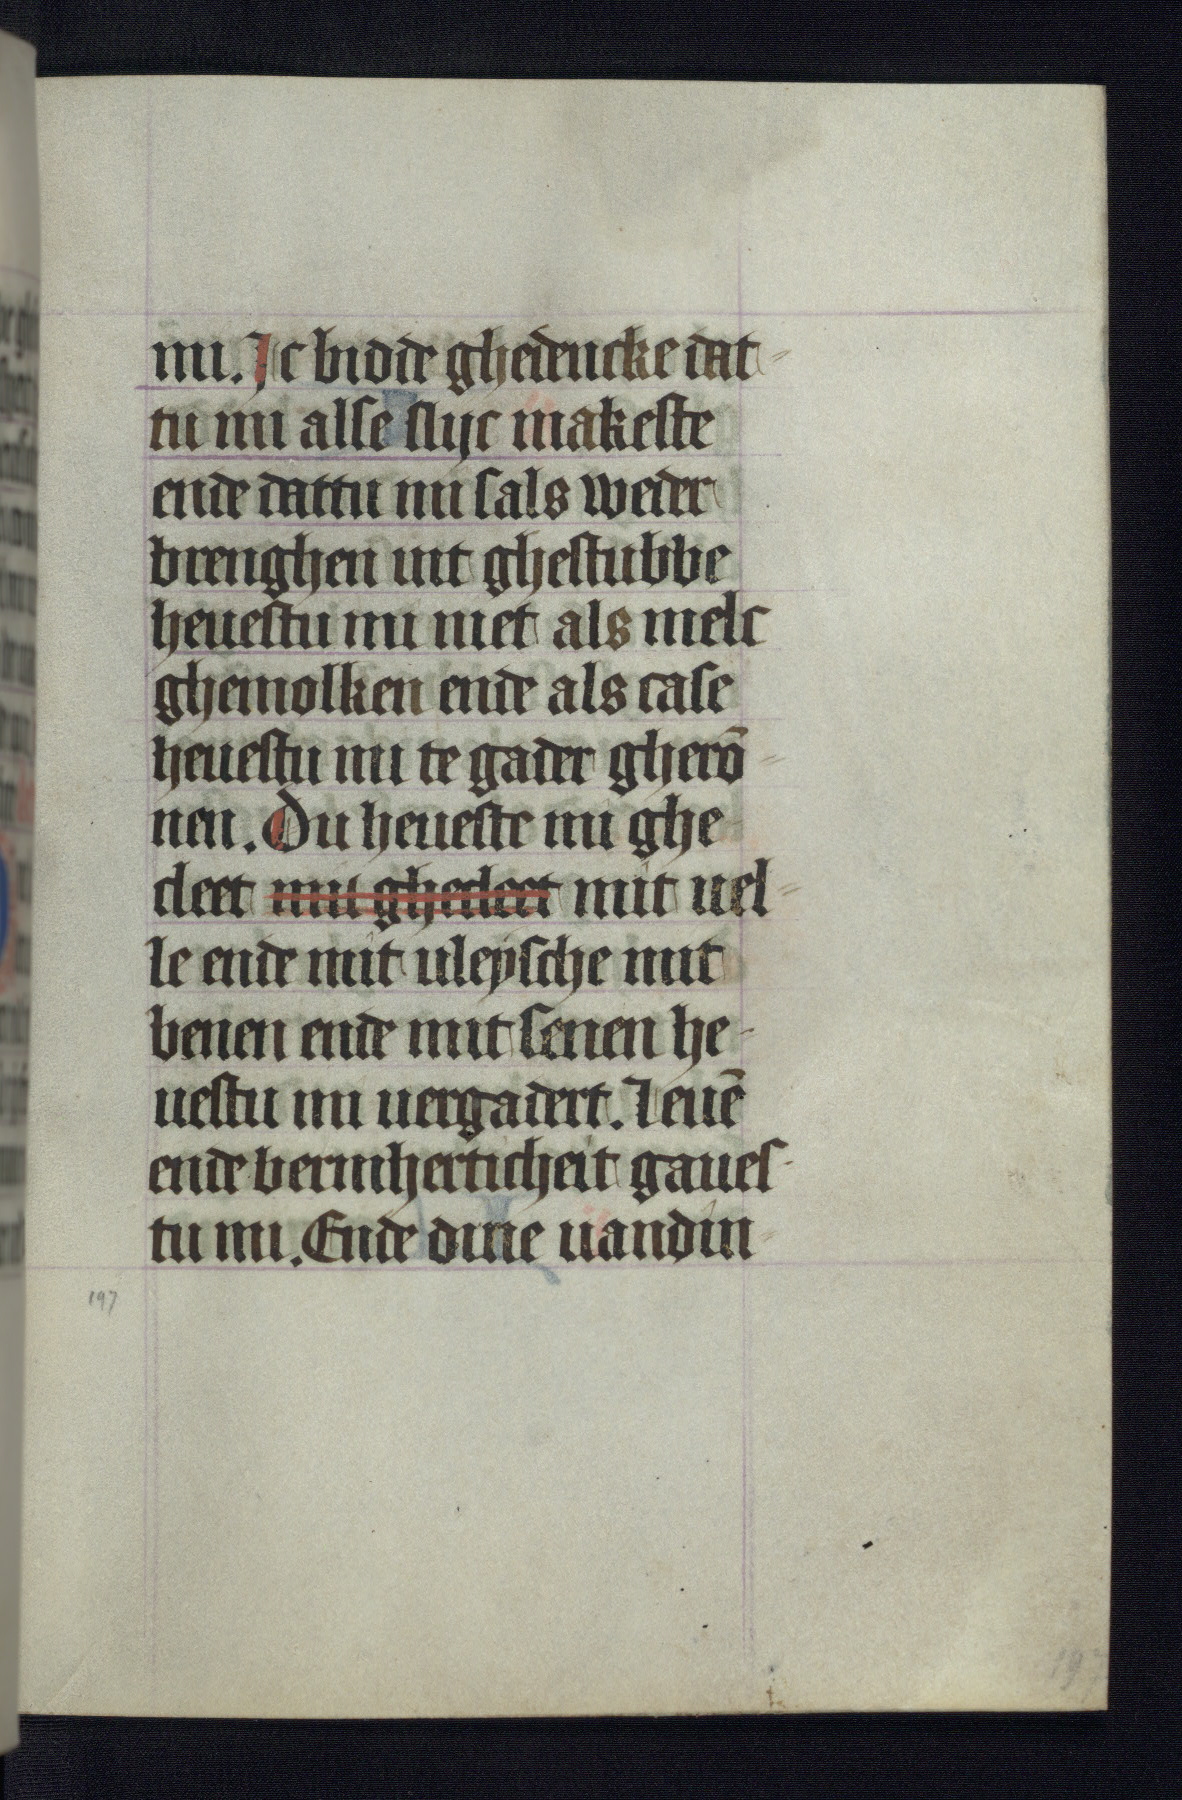 mi. Jc bidde ghedencke dat-
tu mi alse slijc makeste
ende dattu mi sals weder
brenghen int ghestubbe
heuestu mi niet als melc
ghemolken ende als case
heuestu mi te gader gherō-
nen. Du heueste mi ghe
cleet mit ghecleet mit uel-
le ende mit uleysche mit
benen ende mit senen he-
uestu mi uergadert. Leuē
ende bermherticheit gaues-
tu mi. Ende dine uandin-
197